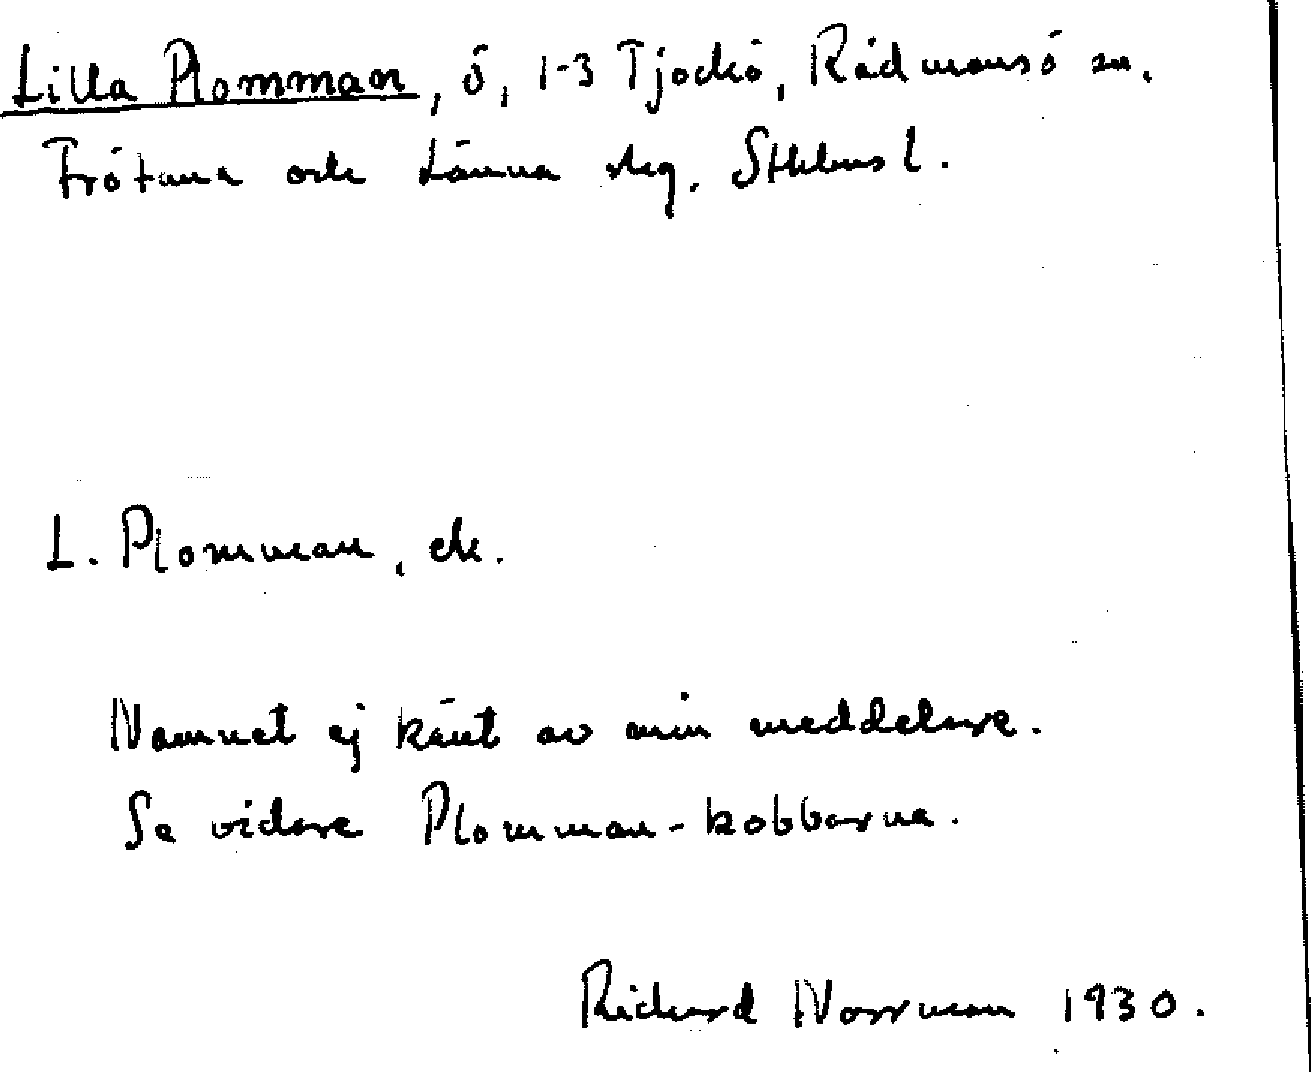 Lilla Plomman, ö, 1-3 Tjockö, Rådmansö sn.
Frötuna och Länna skg. Sthlms l.
L. Plomman, ek.
Namnet ej känt av min meddelare.
Se vidare Plomman-kobbarna.
Richard Norrman 1930.